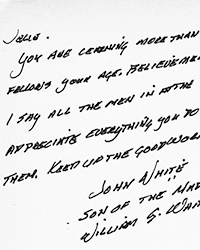 YOU ARE LEARNING MORE THAN
FELLOWS YOUR AGE. BELIEVE ME
I SAY ALL THE MEN IN THE
APPRECIATE EVERYTHING YOU DO
THEM. KEEP UP THE GOOD WOR
JOHN WHITE
SON OF THE
WILLIAM S. WHI